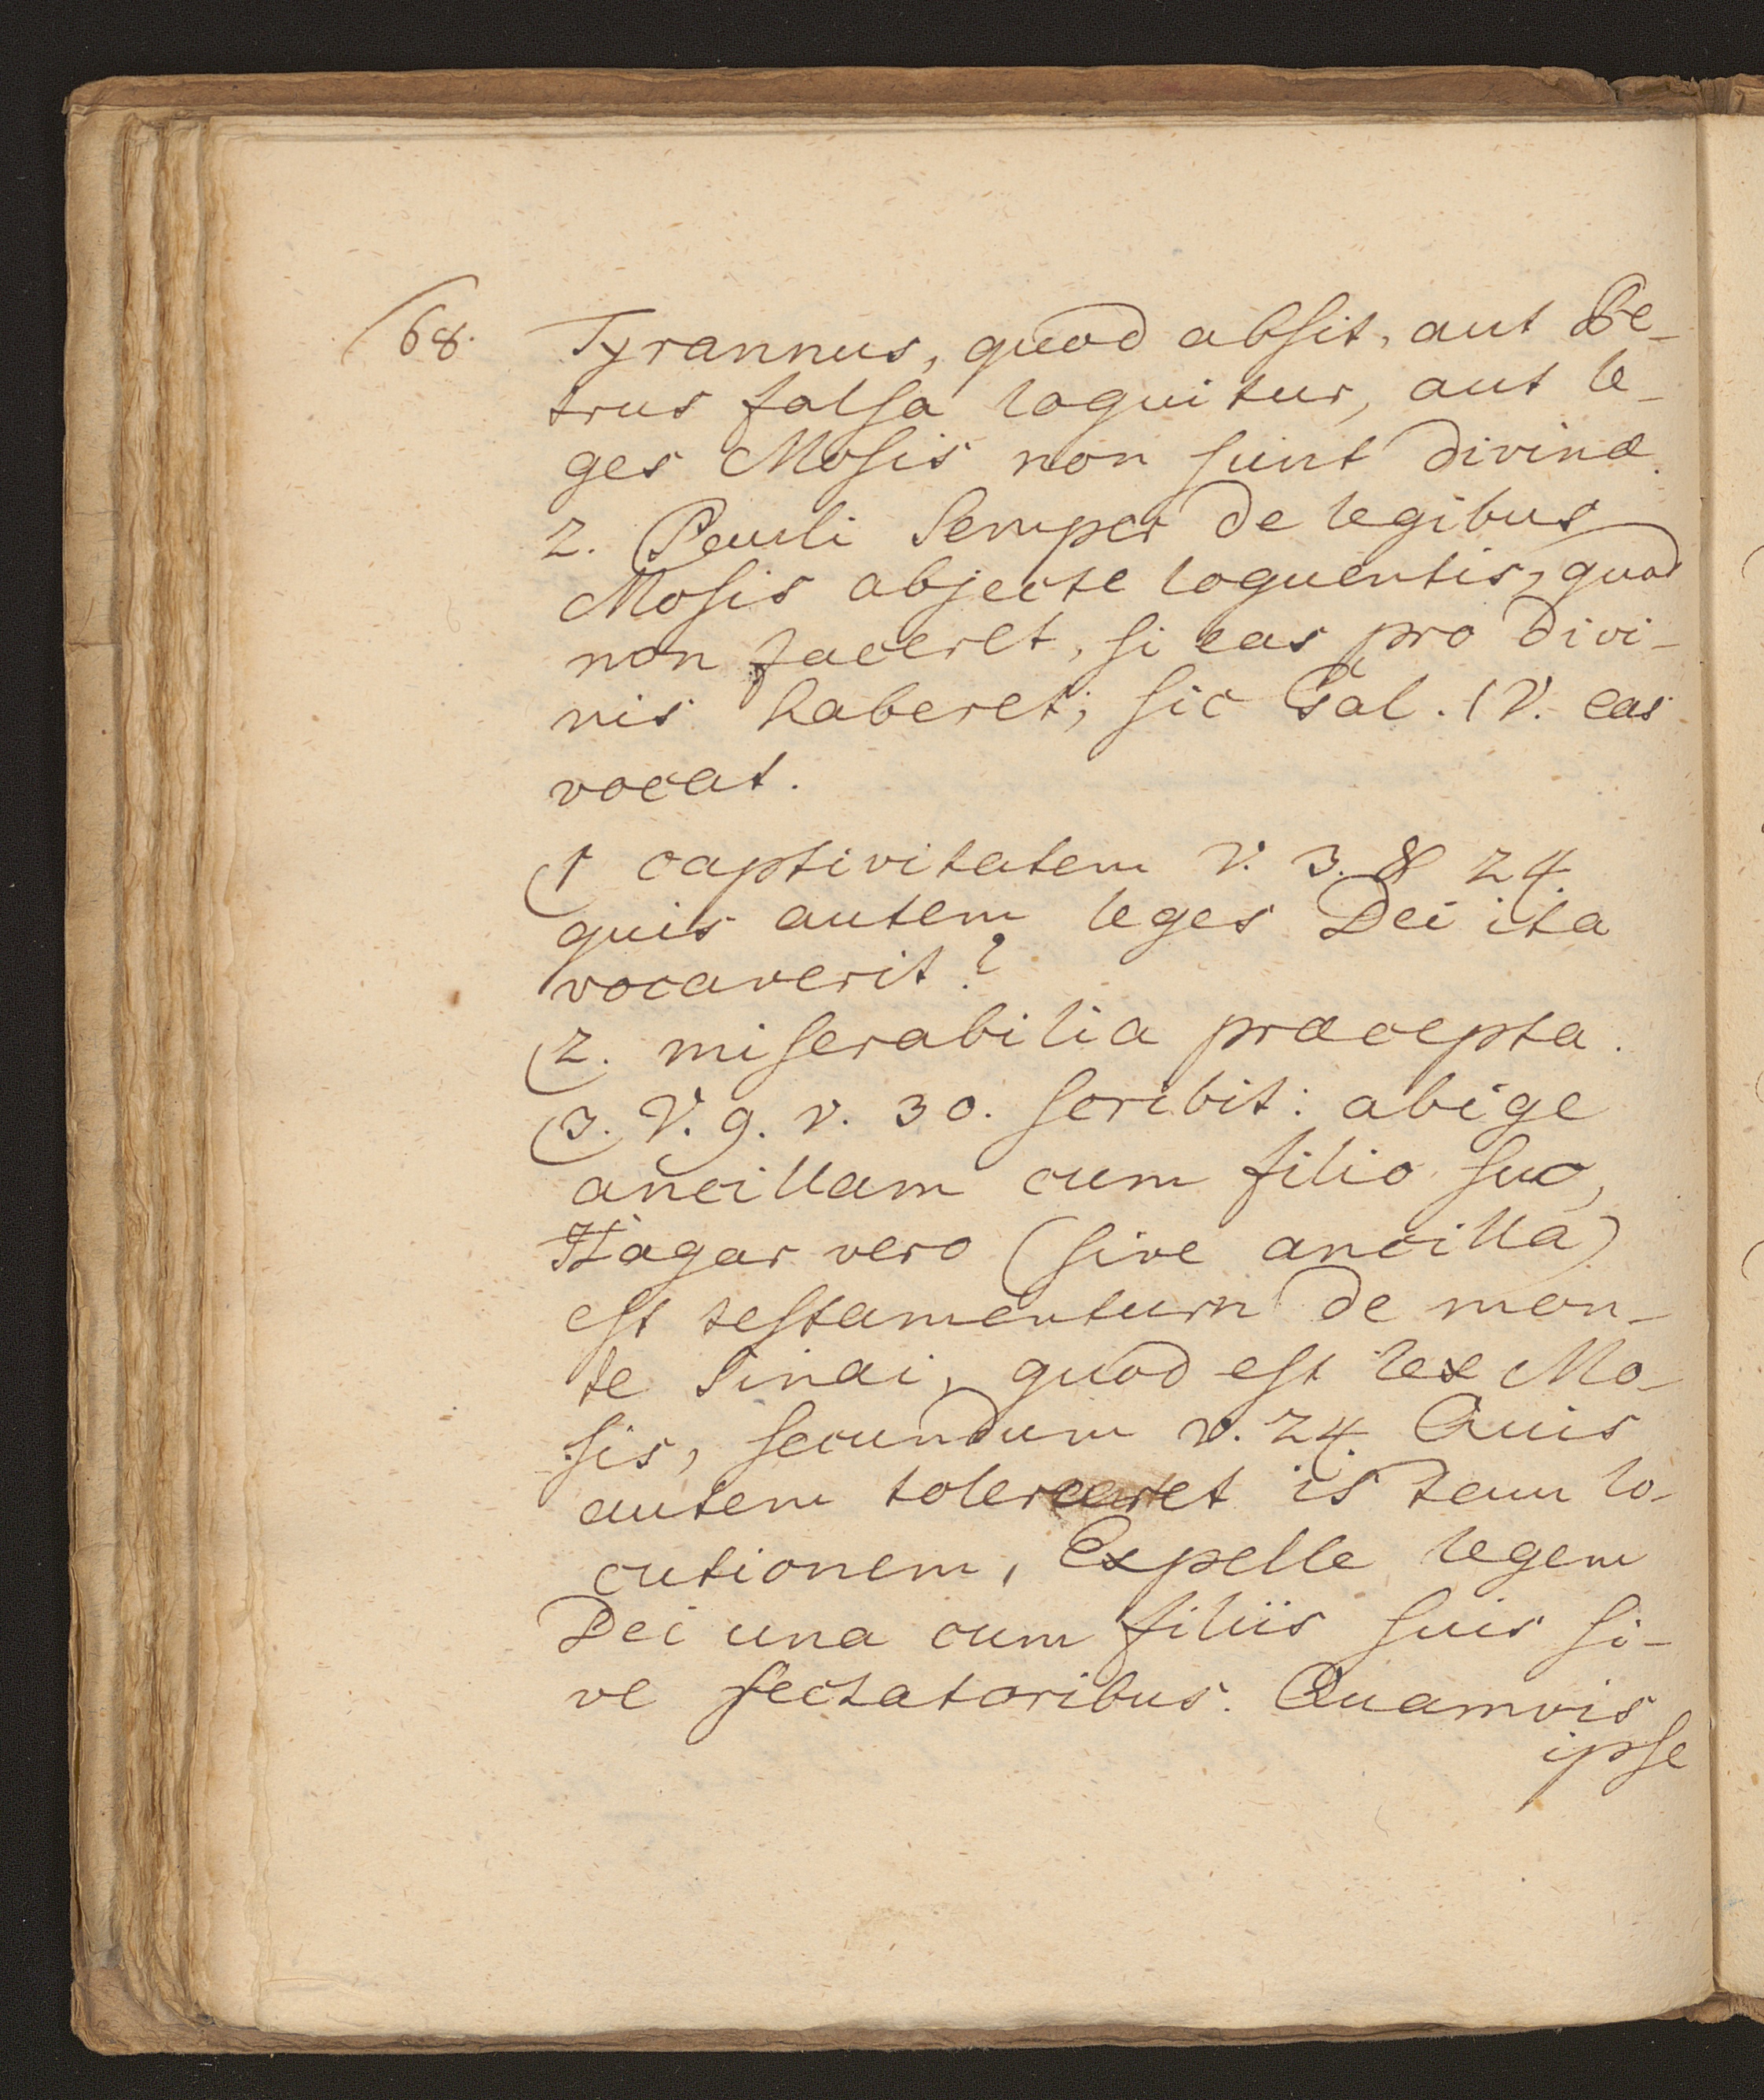 68.
Tyrannus, quod absit, aut Pe-
trus falsa loquitur, aut le-
ges Mosis non sunt divinæ.
2. Pauli semper de legibus
Mosis abjecte loquentis, quod
non faceret, si eas pro divi-
nis haberet; sic Gal. IV. eas
vocat.
(1 captivitatem v. 3. & 24.
quis autem leges Dei ita
vocaverit?
(2. miserabilia præcepta.
(3. V. 9. v. 30. scribit: abige
ancillam cum filio suo,
Hagar vero (sive ancilla)
est testamentum de mon-
te Sinai, quod est lex Mo-
sis, secundum v. 24. Quis
autem toleraret is tam lo-
cutionem, Expelle legem
Dei una cum filiis suis si-
ve sectatoribus. Quamvis
ipse